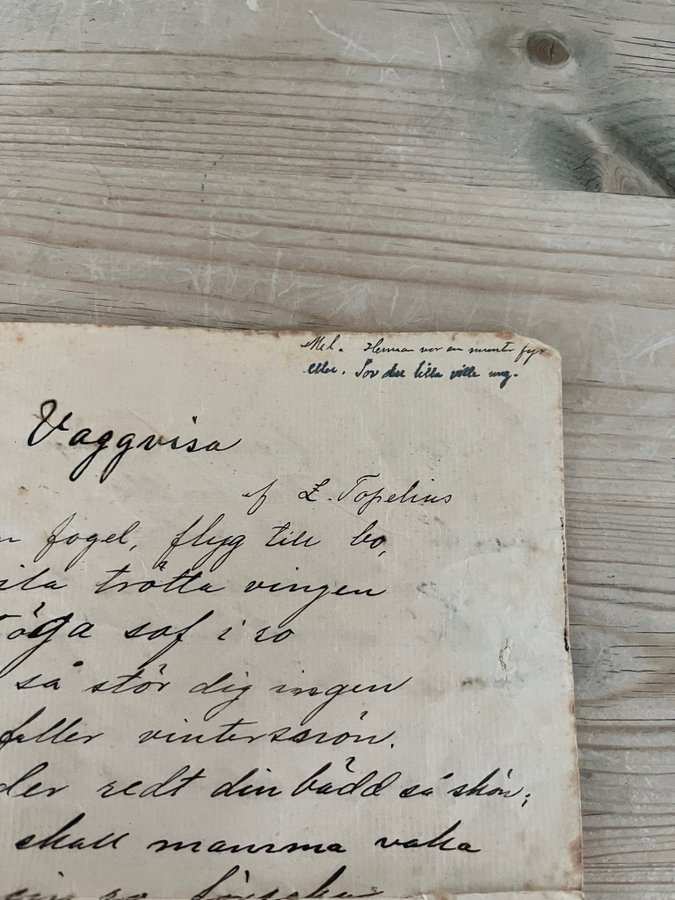 Mel. Herman var en munter fyr
eller. Sov du lilla vilde ung.
Vaggvisa
af Z. Topelius
fogel, flyg till bo,
trötta vingen
öga sof i ro
så stör dig ingen
faller vintersnön.
redt din bädd så skön;
skall mamma vaka